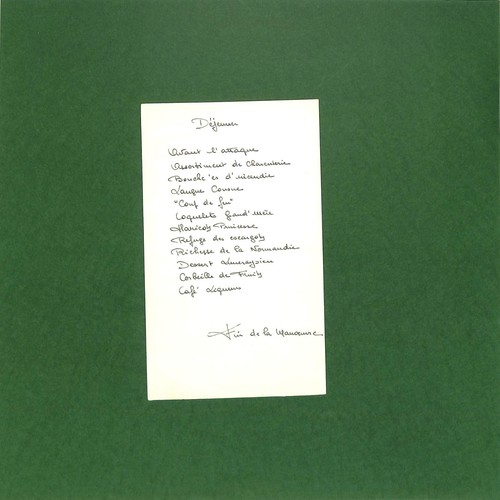 Déjeuner
Avant l'attaque
Assortiment de Charcuterie
Bouche'es d'incendie
Langue
"Coup de feu"
Coquelets Grand'Mère
Haricots Princesse
Refuge des escargots
Richesse de la Normandie
Dessert
Corbeille de Fruits
Café Liqueurs
Fin de la Manoeuvre